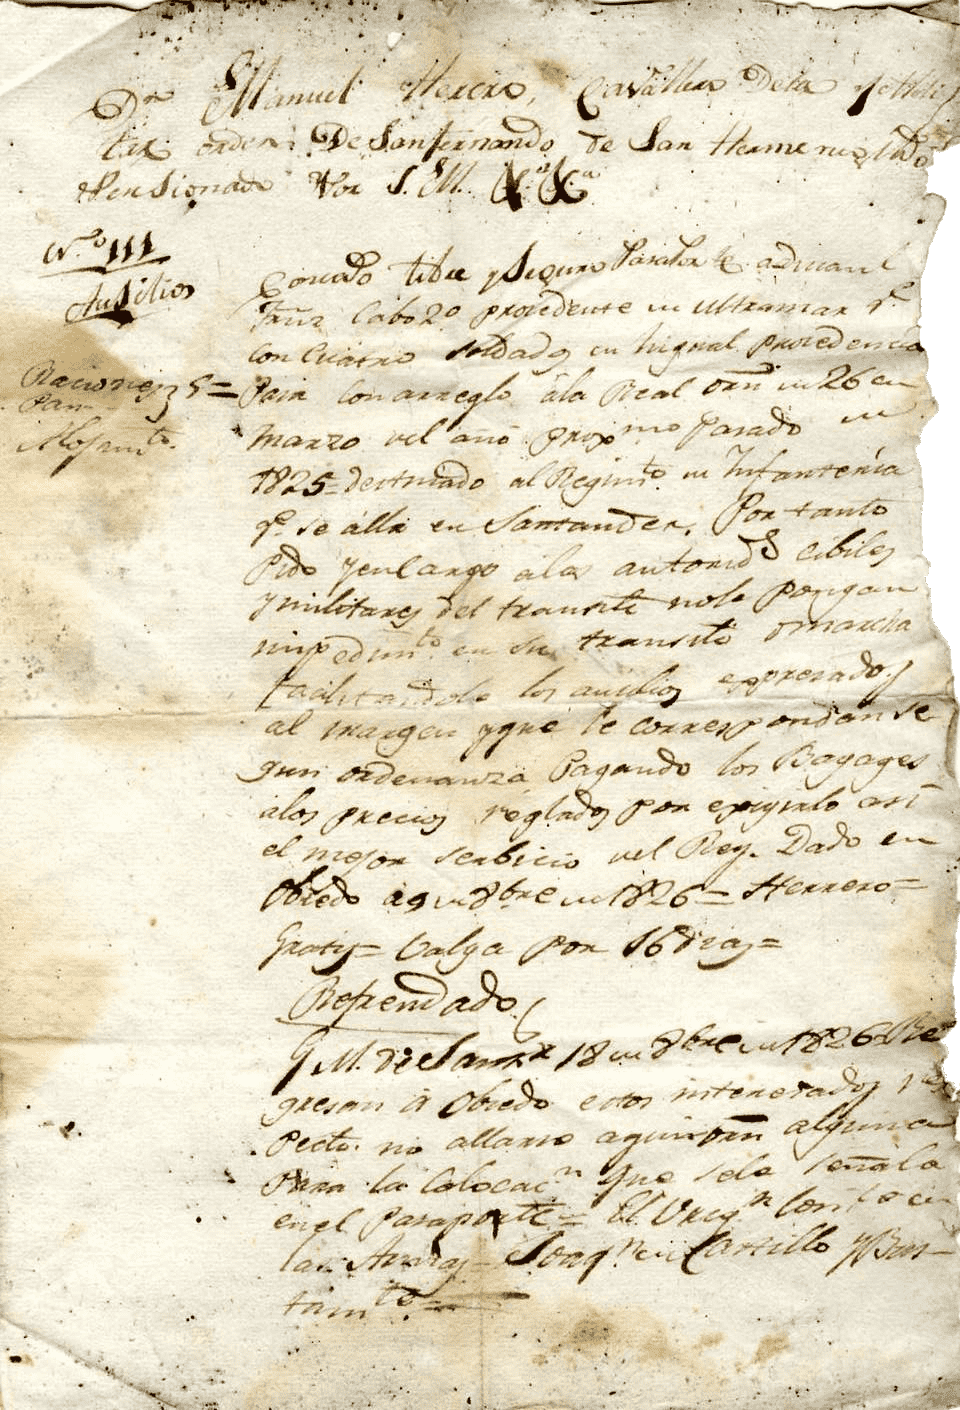 Dn Manuel Herero, Cavallero Dela y el Mili
tar orden De San fernando de San Hermenegildo
Pensionado Por S. M. &a &a
N.º 111
Ausilios
Raciones 5=
Pan
Alojamto.
Concedo libre y Seguro Pasaporte a Juan
Frnz Cabo 2º procedente de ultramar qe
con cuatro soldados de higual procedencia
Para con arreglo ála Real orn de 26 de
Marzo del año proxmo Pasado de
1825= destinado al Regimto de Infanteria
qe se álla en Santander. Por tanto
Pido y encargo alas autoridS cibiles
y militares del transito nole pongan
impedimto en su transito o marcha
facilitandole los ausilios expresados
al margen y que le correspondan se
gun ordenanza Pagando los Bagages
alos precios reglados por exigirlo asi
el mejor serbicio del Rey. Dado en
Obiedo a 9 de 8bre de 1826= Herrero=
Gratis= Valga por 16 dias=
Refrendado
G M. de Santr 18 de 8bre de 1826= Re
gresan á Obiedo estos interesados res
pecto no allarse aqui orn alguna
Para la Colocacn que sele señala
en el Pasaporte= El
las Armas= Joaqn de Castillo y Bus-
tamte=